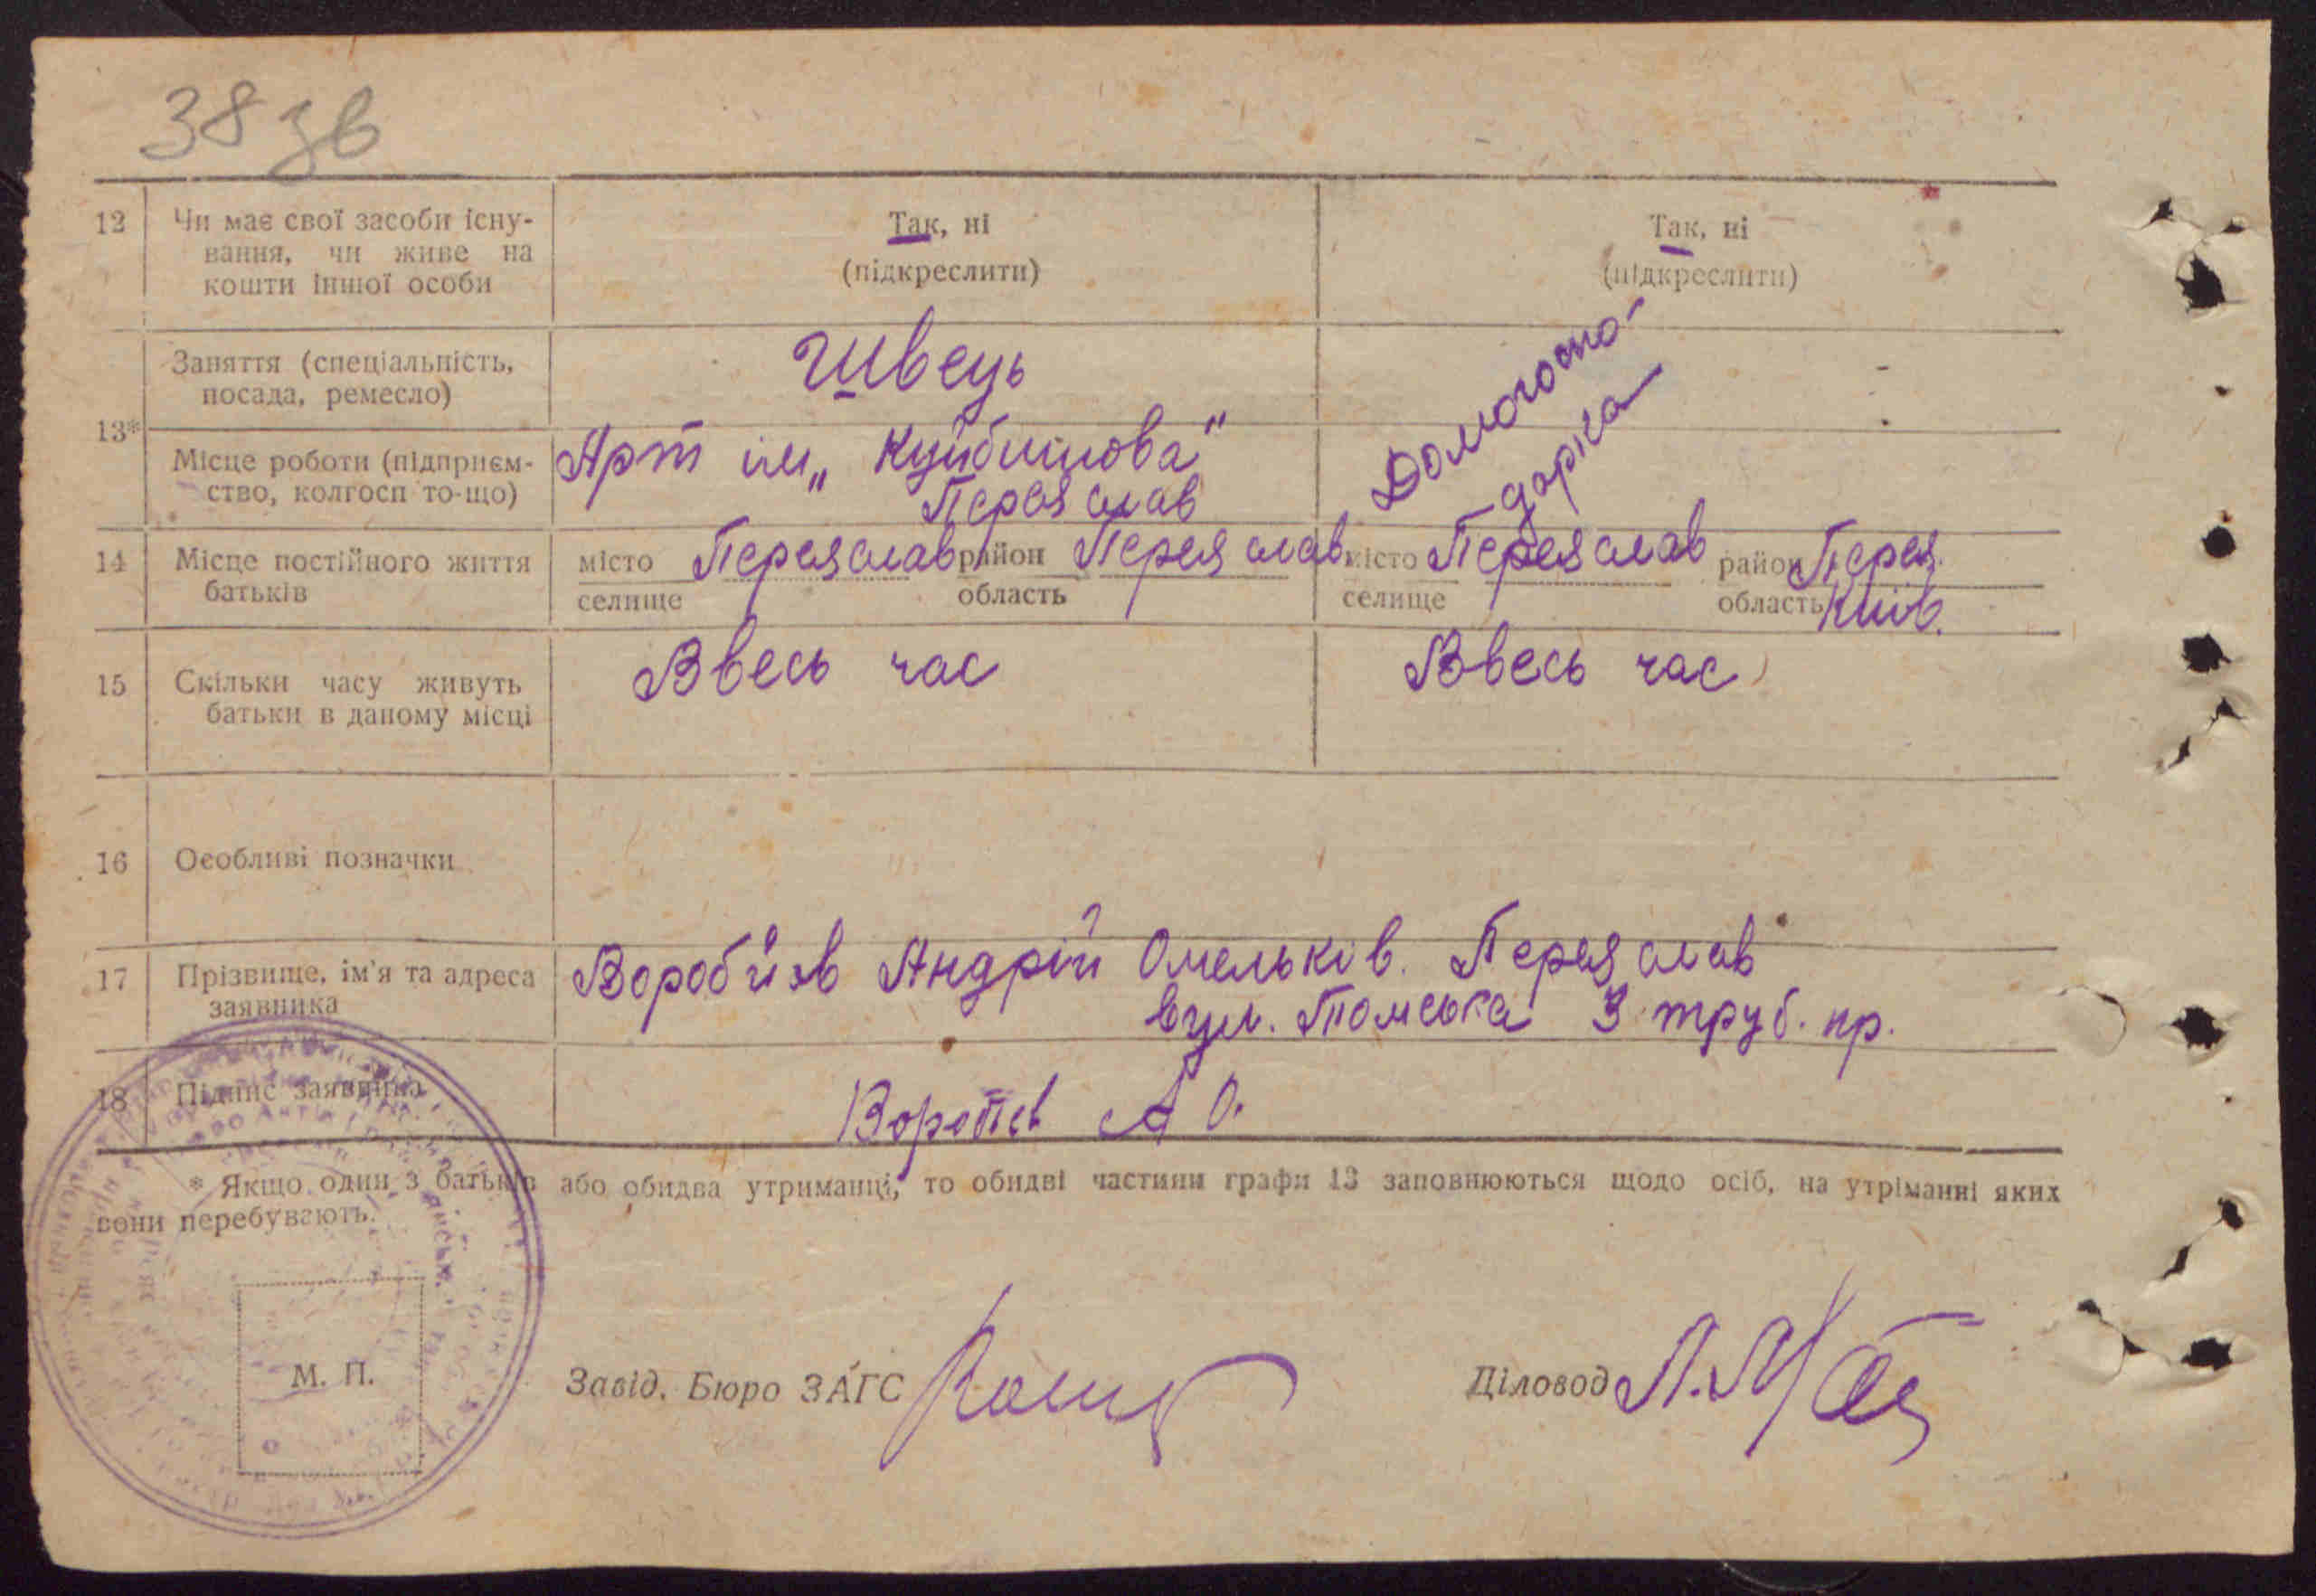 38 зв
12 Чи має свої засоби існу- Так, ні Так, ні
вання, чи живе на (підкреслити) (підкреслити)
кошти іншої особи
Заняття (спеціальність, Швець Домогоспо-
посада, ремесло) дарка
13*
Місце роботи (підприєм- Арт їм „Куйбишова"
ство, колгосп то-що) Переяслав
14 Місце постійного життя місто Переяслав район Переяслав місто Переяслав район Перея.
батьків селище область селище область Київ.
15 Скільки часу живуть Ввесь час Ввесь час
батьки в даному місці
16 Особливі позначки
17 Прізвище, ім'я та адреса Воробйов Андрій Омельків. Переяслав
заявника вул. Томська 3 труб. пр.
18 Підпис заявника А О.
* Якщо один з батьків або обидва утриманці, то обидві частини графи 13 заповнюються щодо осіб, на утріманні яких
вони перебувають.
М. П. Завід. Бюро ЗАГС Діловод